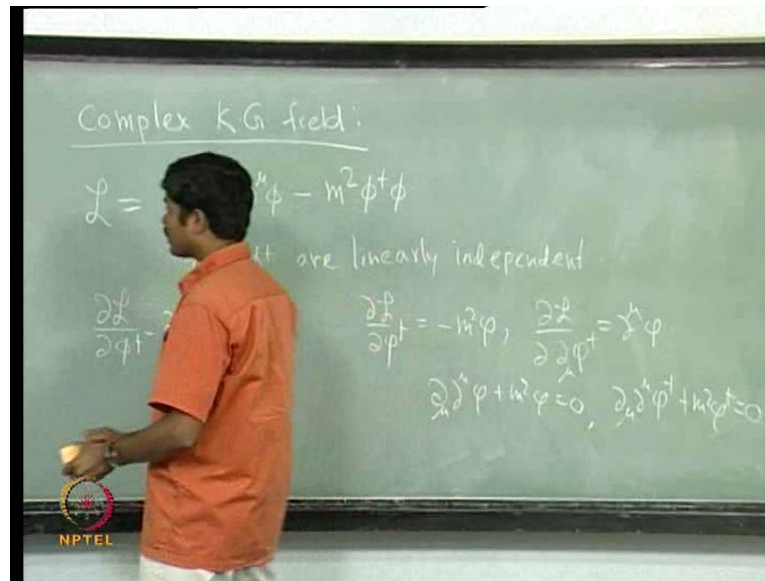 Complex KG field:
ℒ = ^μ φ − m² φ† φ
are linearly independent
∂ℒ/∂φ† − ∂ℒ/∂φ† = −m² φ, ∂ℒ/∂ ∂_μ φ† = ∂^μ φ
∂_μ ∂^μ φ + m² φ = 0, ∂_μ ∂^μ φ† + m² φ† = 0
NPTEL